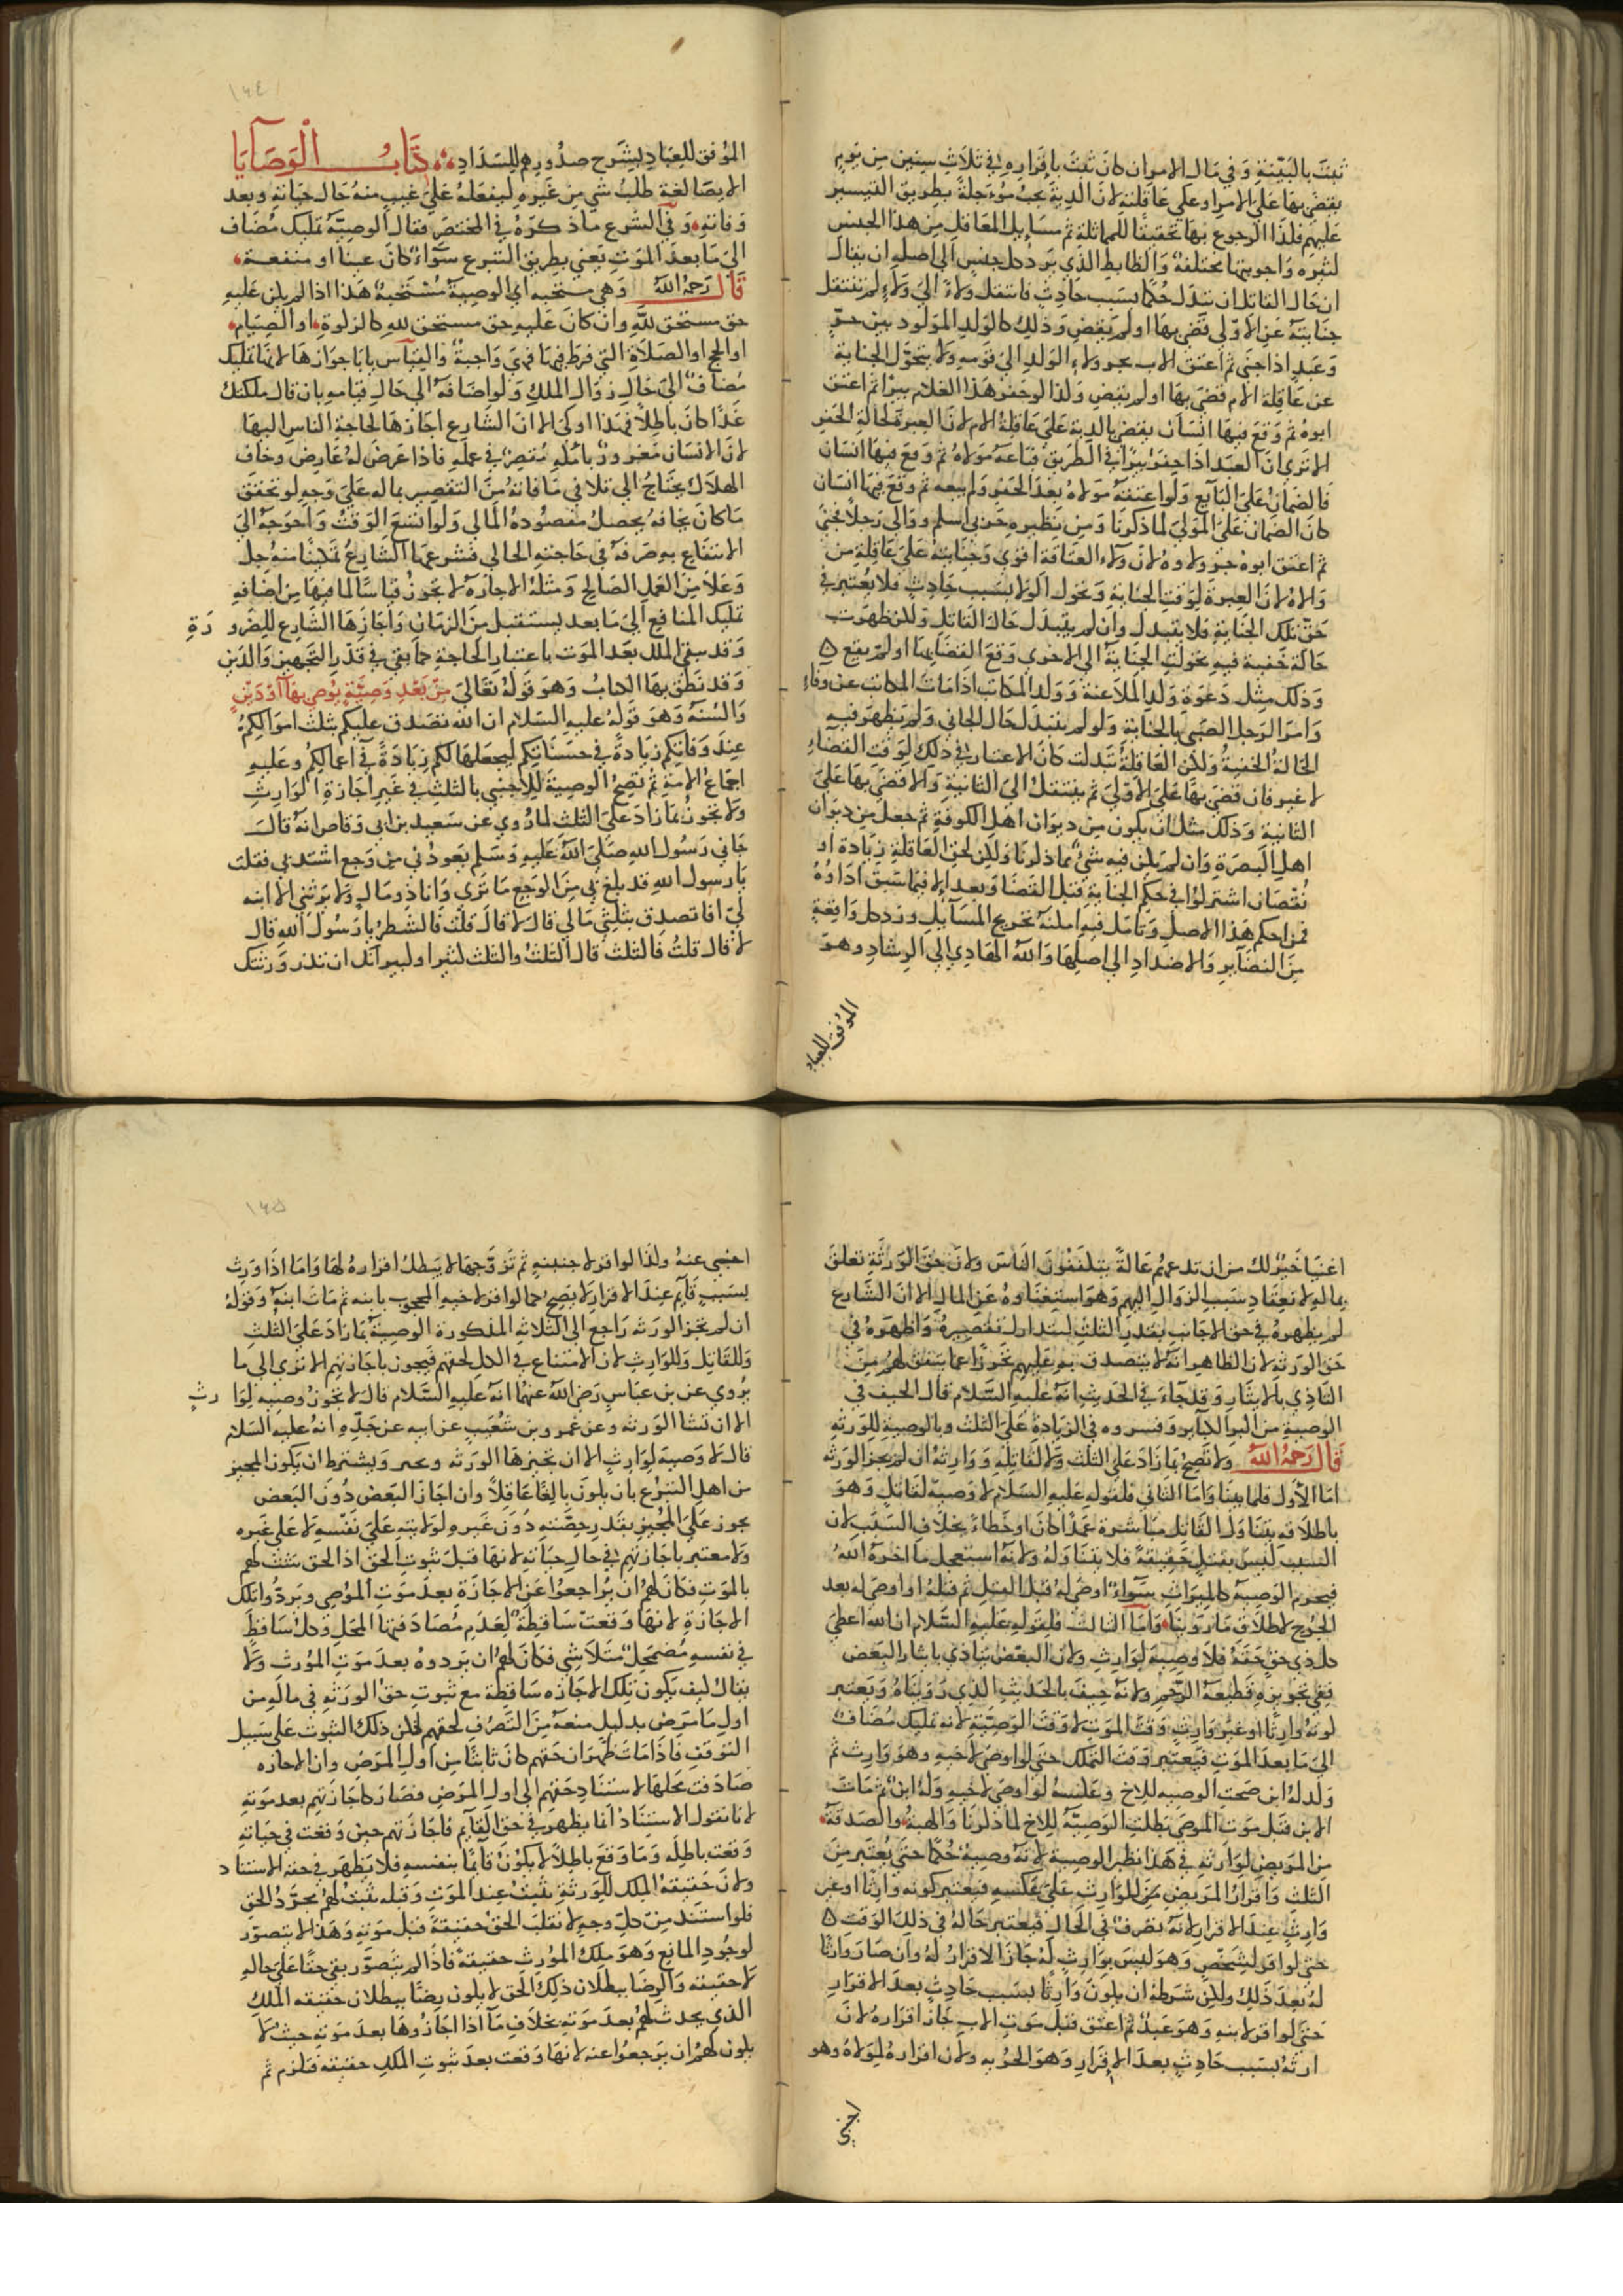 ثبتَ بالبَيّنةِ وَفي مَال الامير ان كانَ ثبتَ باقراره في ثلاثِ سِنين من يَومِ
يقضى بهَا عَلى الامير او عَلى عَاقلته لانَ الديَة تجب مُوءَجلةً بطريق التيسير
عَليهم فلذا الرجوع بهَا تحقيقا للمماثلة ثم مسَايل المعَاقل من هذا الجنس
كثيره وَاجوبتها مختلفة وَالضابط الذي يَردُ كل جنسٍ الى اصلهِ ان يقال
ان حَال القاتل ان تبدّل حُكمًا بسَبب حَادثٍ فانتقل ولاءهُ الى وَلاءٍ لم تنتقل
جنَايتهُ عَن الاوّلى قضى بها اولم يَقضِ وَذلك كالوَلدِ المَولُود بين حرّةٍ
وَعَبدٍ اذا جنى ثم اعتق الاب يجر ولاءَ الوَلدِ الى قومهِ وَلا يتحوّل الجناية
عن عَاقلة الام قضى بهَا اولم يَقضِ وَلذا لو حفر هَذا الغلام بيرًا ثم اعتق
ابوهُ ثم وَقعَ فيهَا انسَان يقضى بالدية عَلى عَاقلة الام لانَ العبرة لحالة الحَفر
الا ترى انَ العبد اذا حفرَ بيرًا في الطريق فبَاعهُ مَولاهُ ثم وَقعَ فيهَا انسَان
فالضمَان عَلى البَايع وَلو اعتقهُ مَولاهُ بعدَ الحفر وَلم يبعه ثم وَقعَ فيهَا انسَان
كانَ الضمان عَلى المَولى لما ذكرنَا وَمن نظيره حَربي اسلم ووَالى رَجلا فجنى
ثم اعتق ابوهُ جرّ ولاوهُ لان وَلاء العتَاقة اقوى وَجنَايتهُ عَلى عَاقلة من
وَالاهُ لانَ العبرة لوقتِ الجنَاية وَتحول الوَلا بسَبب حَادثٍ فلا يُعتبر في
حَقّ تلك الجنَاية فلا يتبدل وان لم يتبدل حَال القاتل وَلكن ظهرت
حَالة خفية فيهِ تحوّلت الجنَاية الى الاخرى وَقعَ القضَا بها اولم يَقع ه
وَذلك مِثل دَعْوَةِ وَلدِ المَلاعنة وَوَلد المكاتب اذَا مَات المكاتب عن وفاءٍ
وَامرَ الرَجل الصَبي بالجنَاية وَلو لم يتبدّل حَال الجاني وَلم يَظهر فيهِ
الحَالةُ الخفيةُ وَلكن العَاقلةُ تبدلت كانَ الاعتبار في ذلك لوَقت القضَاءِ
لا غير فان قضى بهَا عَلى الاوّلى ثم ينتقل الى الثانية وَالا قضى بهَا عَلى
الثانية وَذلك مثل ان يكون من ديوَان اهلِ الكوفةِ ثم جعلَ من ديوَان
اهل البَصرَة وَان لم يكن فيه شيءٌ مما ذكرنَا وَلكن لحق العَاقلة زيادة او
نُقصَان اشتركوا في حكم الجناية قبل القضَا وَبعده الا فيما سَبق ادَاؤهُ
فمن احكم هَذا الاصل وَتأمّل فيه امكنهُ تخريج المسَايل ورد كل وَاقعةٍ
مِنَ النضَايرِ وَالاضدادِ الى اصلهَا وَاللهُ الهَادي الى الرشادِ وهوَ
الموُفق للعباد
١٦٤
الموُفق للعِبَادِ لِشَرح صدُورِهم للسَدَادِ كتَابُ الْوَصَايَا
الايصَا لغة طلَبُ شي مِن غَيرهِ ليفعَلهُ عَلى غيبٍ منهُ حَال حيَاتهِ وبعد
وَفاتهِ وَفي الشرع مَا ذكرهُ في المختصَر فقال الوصيّة تمليك مُضَاف
الى مَا بعدَ المَوتِ يَعني بطريق التبرع سَوَاءٌ كانَ عينًا او منفعة
قَالَ رَحمهُ اللهُ وَهي مستحبه اي الوصيَة مُستَحبةٌ هَذا اذا لم يكن عَليهِ
حق مستحق للهِ وان كانَ عَليهِ حق مستحق للهِ كالزكوة او الصيَام
او الحج او الصَلاةِ التي فرطَ فيهَا فهيَ وَاجبةٌ وَالقيَاس يابَا جوَازهَا لانهَا تمليك
مُضافٌ الى حَالِ زوَال الملكِ وَلو اضَافهُ الى حَالِ قيَامهِ بان قال ملكتك
غَدًا كانَ باطلا فهَذا اوْلى الا انَ الشَارع اجَازهَا لحَاجة الناسِ اليهَا
لانَ الانسَان مَغرورٌ باملهِ مُقصرٌ في عملهِ فاذا عَرضَ لهُ عَارض وخَاف
الهلاَك يحتَاج الى تلا في مَا فاتهُ منَ التقصير بماله عَلى وَجهٍ لو تحقق
مَا كانَ يخافهُ يحصل مقصُودهُ المالي وَلو اتسَعَ الوَقت وَاحوَجهُ الى
الانتفَاع بهِ صَرفهُ في حَاجتهِ الحالي فشرعهَا الشَارعُ تمكينًا منه جل
وَعَلا مِنَ العَمل الصَالحِ وَمثلهُ الاجَارة لا تجوزُ قياسًا لما فيهَا مِن اضَافهِ
تمليك المنَافع الى مَا بعد يستقبل منَ الزمَانِ وَاجَازهَا الشَارع للضرورَةِ
وَقد يبقى الملك بعَد المَوت باعتبار الحَاجةِ كما بقى في قدر التجهيز وَالدَين
وَقد نطق بهَا الكتابُ وَهوَ قولهُ تعَالى مِنْ بَعْدِ وَصِيَّةٍ يُوصِي بِهَا أوْ دَيْنٍ
وَالسُنة وَهوَ قَولهُ عليه السَلام ان الله تصَدق عليكم بثلث اموَالكمُ
عندَ وَفاتكم زيَادةً في حَسنَاتِكم ليجعَلهَا لكم زيَادَةً في اعمالكمُ وعَليهِ
اجمَاعُ الامة ثم تصِحُ الوصية للاجنبي بالثلثِ في غَيرِ اجَازةِ الوَارِثِ
وَلا تجُوزُ بمَا زادَ عَلى الثلث لما رُوي عن سَعيد بن ابى وَقاص انهُ قالَ
جَاني رَسُول اللهِ صَلىَ اللهُ عَليهِ وَسَلم يَعودُني من وَجع اشتدّ بي فقلت
يَا رسول اللهِ قد بلغ بي منَ الوَجعِ مَا ترى وَانَا ذو مَالٍ وَلا يرَثني الا ابنه
لي افاتصدق بثلثي مَالي قالَ لا قالَ قلت فالشطرُ يا رَسُولَ الله قال
لا قال قلتُ فالثلث قال الثلثُ والثلث كثير او كبير انك ان تذر وَرثتك
اغنيَا خَيرٌ لك من ان تدعهُم عَالةً يتكففُونَ النَاسَ وَلانَ حَقَ الوَرثةِ تعلقَ
بمالهِ لانعقَادِ سَببِ الزوَالِ اليهم وَهوَ استِغنَاوهُ عَنِ المالِ الا انَ الشَارع
لم يظهرهُ في حق الاجَانب بقدرِ الثلثِ ليتدارك تقصيرهُ وَاظهَرَهُ في
حَق الورَثه لان الظاهر انهُ لا يتصدق بهِ عَليهم تحرزًا عما يتفق لهم منَ
التَاذي بالايثَارِ وَقد جَاءَ في الحَديثِ انهُ عليهِ السَّلام قال الحيف في
الوصيةِ من اكبر الكبَاير وَفسروه في الزيَادةِ عَلى الثلث وبالوصيةِ للورَثهِ
قَالَ رَحمهُ اللهُ وَلا تصحُّ بمَا زَادَ عَلى الثلث وَلا لقَاتلهِ وَوَارثهِ ان لم يجز الورَثه
امَا الاَولُ فلما بينا وَامَا الثَاني فلقولهِ عَليهِ السَلام لا وَصيّة لقاتل وَهوَ
باطلاقهِ يتنَاوَل القَاتل مبَاشرة عَمدًا كانَ او خطاءً بخلافِ السَببِ لان
السَبب ليسَ بقتلٍ حَقيقةً فلا يتنَاوَلهُ وَلانهُ استعجل مَا اخرهُ اللهُ
فيحرم الوَصيه كالميرَاثِ سَواءٌ اوصَى لهُ قبل القتل ثم قتلهُ او اوصَى له بعد
الجرح لاطلاقِ مَا رَوَيْنَا وَاَمَّا الثالث فلقولهِ عَليهِ السَلام ان الله اعطى
كل ذي حَقٍ حَقّهُ فلا وصيةَ لوَارِثٍ وَلان البَعضَ يتاذي بايثار البَعض
ففي تجويزهِ قَطيعة الرحم وَلانهُ حيف بالحَديثِ الذي رَوَيْنَاهُ وَيعتبر
كونهُ وارثًا او غيرَ وَارثٍ وَقت المَوتِ لا وَقت الوَصيّةِ لانه تمليك مُضَافٌ
الى مَا بعد المَوتِ فيعتبر وَقت التملك حتى لو اوصَى لاخيهِ وهوَ وَارث ثم
وَلد لهُ ابن صَحت الوصيه للاخ وعَكسهُ لو اوصَى لاخيهِ وَلهُ ابن ثم مَات
الابن قبل مَوت الموصي بطلت الوَصيّةُ للاخ لما ذكرنَا وَالهبةُ والصَدقَة
مِنَ المَريض لوَارثهِ في هَذا نظير الوصية لانهُ وصية حُكمًا حتى يُعتبرَ منَ
الثلث وَاقرَارُ المَريضِ للوَارِثِ عَلى عَكسهِ فيعتبر كونه وَارثًا او غير
وَارثٍ عندَ الاقرار لانهُ تصرّف في الحَال فيُعتبر حَالهُ في ذلك الوَقت ه
حتى لو اقر لشخصٍ وَهوَ ليسَ بوَارثٍ لهُ جَازَ الاقرَارُ لهُ وَان صَارَ وَارثًا
لهُ بعدَ ذلك ولكن شرطهُ ان يكونَ وَارثًا بسَبب حَادثٍ بعدَ الاقرَار
حَتى لو اقر لابنهِ وَهوَ عَبدٌ ثم اعتق قبلَ مَوت الاب جَازَ اقرَارهُ لانَ
ارثهُ بسَبب حَادثٍ بعدَ الاقرَار وَهوَ الحريه وَلان اقرارهُ لمَولاهُ وهو
اجنبي
١٦٥
اجنبي عنهُ ولذَا لو اقر لاجنبيةٍ ثم تزوَّجهَا لا يَبطلُ اقرَارهُ لهَا وَامَا اذَا وَرِث
بسَببٍ قَايمٍ عندَ الاقرَارِ لا يصحُ كما لو اقر لاخيهِ المحجُوب بابنه ثم مَات ابنهُ وَقولهُ
ان لم تجز الورَثه رَاجع الى الثلاثهِ المذكورة الوصيَة بمَا زادَ عَلى الثلثِ
وَللقَاتل وَللوَارِثِ لان الامتناع في الكل لحقهم فيجوز باجَازتهم الا ترى الى ما
يُروي عن بن عبَاس رَضي اللهُ عَنهمَا انهُ عليهِ السَّلام قالَ لا تجوزُ وصيه لوَارِثٍ
الا ان تشا الوَرثه وعن عَمرو بن شُعَيبٍ عن ابيه عن جَدّه انهُ عليهِ السَلام
قال لا وَصيَه لوَارِثٍ الا ان تجيزهَا الورَثه وَيشترط ان يكون المجيز
من اهلِ التبرُّع بان يكونَ بالغًا عَاقلاً وان اجَازَ البَعضُ دُونَ البَعضِ
يجوز عَلى المُجيز بقدر حصَّتهِ دُونَ غَيره لولايتهِ عَلى نَفسهِ لا عَلى غَيره
وَلا معتبر باجَازتهم في حَالِ حيَاته لانهَا قبلَ ثبوتِ الحق اذ الحق يثبت لهُم
بالمَوتِ فكانَ لهُم ان يرُاجعوا عَنِ الاجَازَةِ بعدَ مَوتِ الموُصي ويَردُّوا تلك
الاجَازة لانهَا وَقعَت سَاقطةً لعَدم مُصَادَفتهَا المحَل وَكلُ سَاقطٍ
في نفسهِ مُضمحلٌّ متلاشي فكانَ لهُم ان يرَدوهُ بعدَ مَوتِ المُورث وَلا
يقال كيف يَكون تِلك الاجَازه سَاقطة مع ثبوتِ حق الورَثهِ في مالهِ من
اولِ مَا مَرض بدليل منعهِ منَ التَصرُفِ لحقهم لان ذلك الثبوت عَلى سَبيل
التوَقفِ فاذَا مَات ظهر ان حَقهم كانَ ثابتًا من اولِ المرَضِ وان الاجازه
صَادَفت محَلهَا لاستنادِ حَقهم الى اولِ المرَضِ فصَارَ كاجَازتهم بعد مَوتهِ
لانا نقول الاستنادُ انمَا يظهر في حَق القايم فاجَازتهم حين وَقعت في حيَاته
وَقعت باطله وَمَا وَقعَ باطلاً لا يكونُ قايمًا بنفسهِ فلا يَظهَر في حقه الاستناد
وَلان حَقيقة الملك للورَثةِ تثبتُ عِندَ المَوتِ وَقبله ثبت لهُم مجرَّدُ الحَقِ
فلو استَند من كلّ وَجهٍ لانقلبَ الحَقُ حَقيقةً قبل مَوتهِ وَهذا لا يتصوّر
لوجُودِ المانع وَهوَ مِلكُ المُورِثِ حقيقةً فاذَا لم يَتصَوَّر بقي حقًا عَلى حالهِ
لا حقيقه وَالرِضَا ببطلان ذلك الحَق لا يكون رضًا ببطلان حَقيقه الملك
الذي يحدث لهُم بعدَ مَوتهِ بخلافِ مَا اذا اجَازوهَا بعدَ مَوتهِ حيث لا
يكون لهُم ان يرَجعُوا عنه لانهَا وَقعت بعدَ ثبوتِ الملكِ حقيقة فلزم ثم